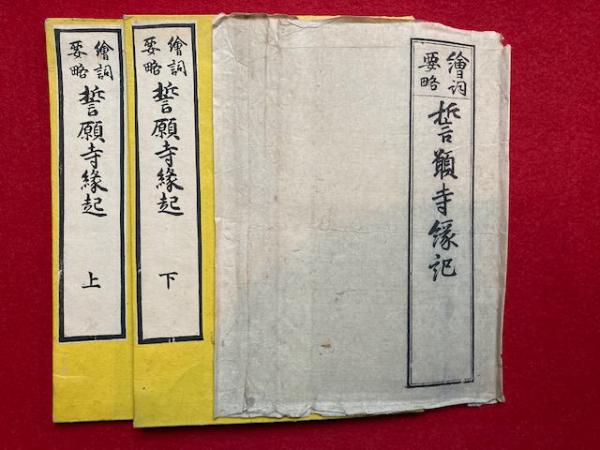 繪詞
要略
誓願寺縁記
繪詞
要略
誓願寺緣起
下
繪詞
要略
誓願寺緣起
上